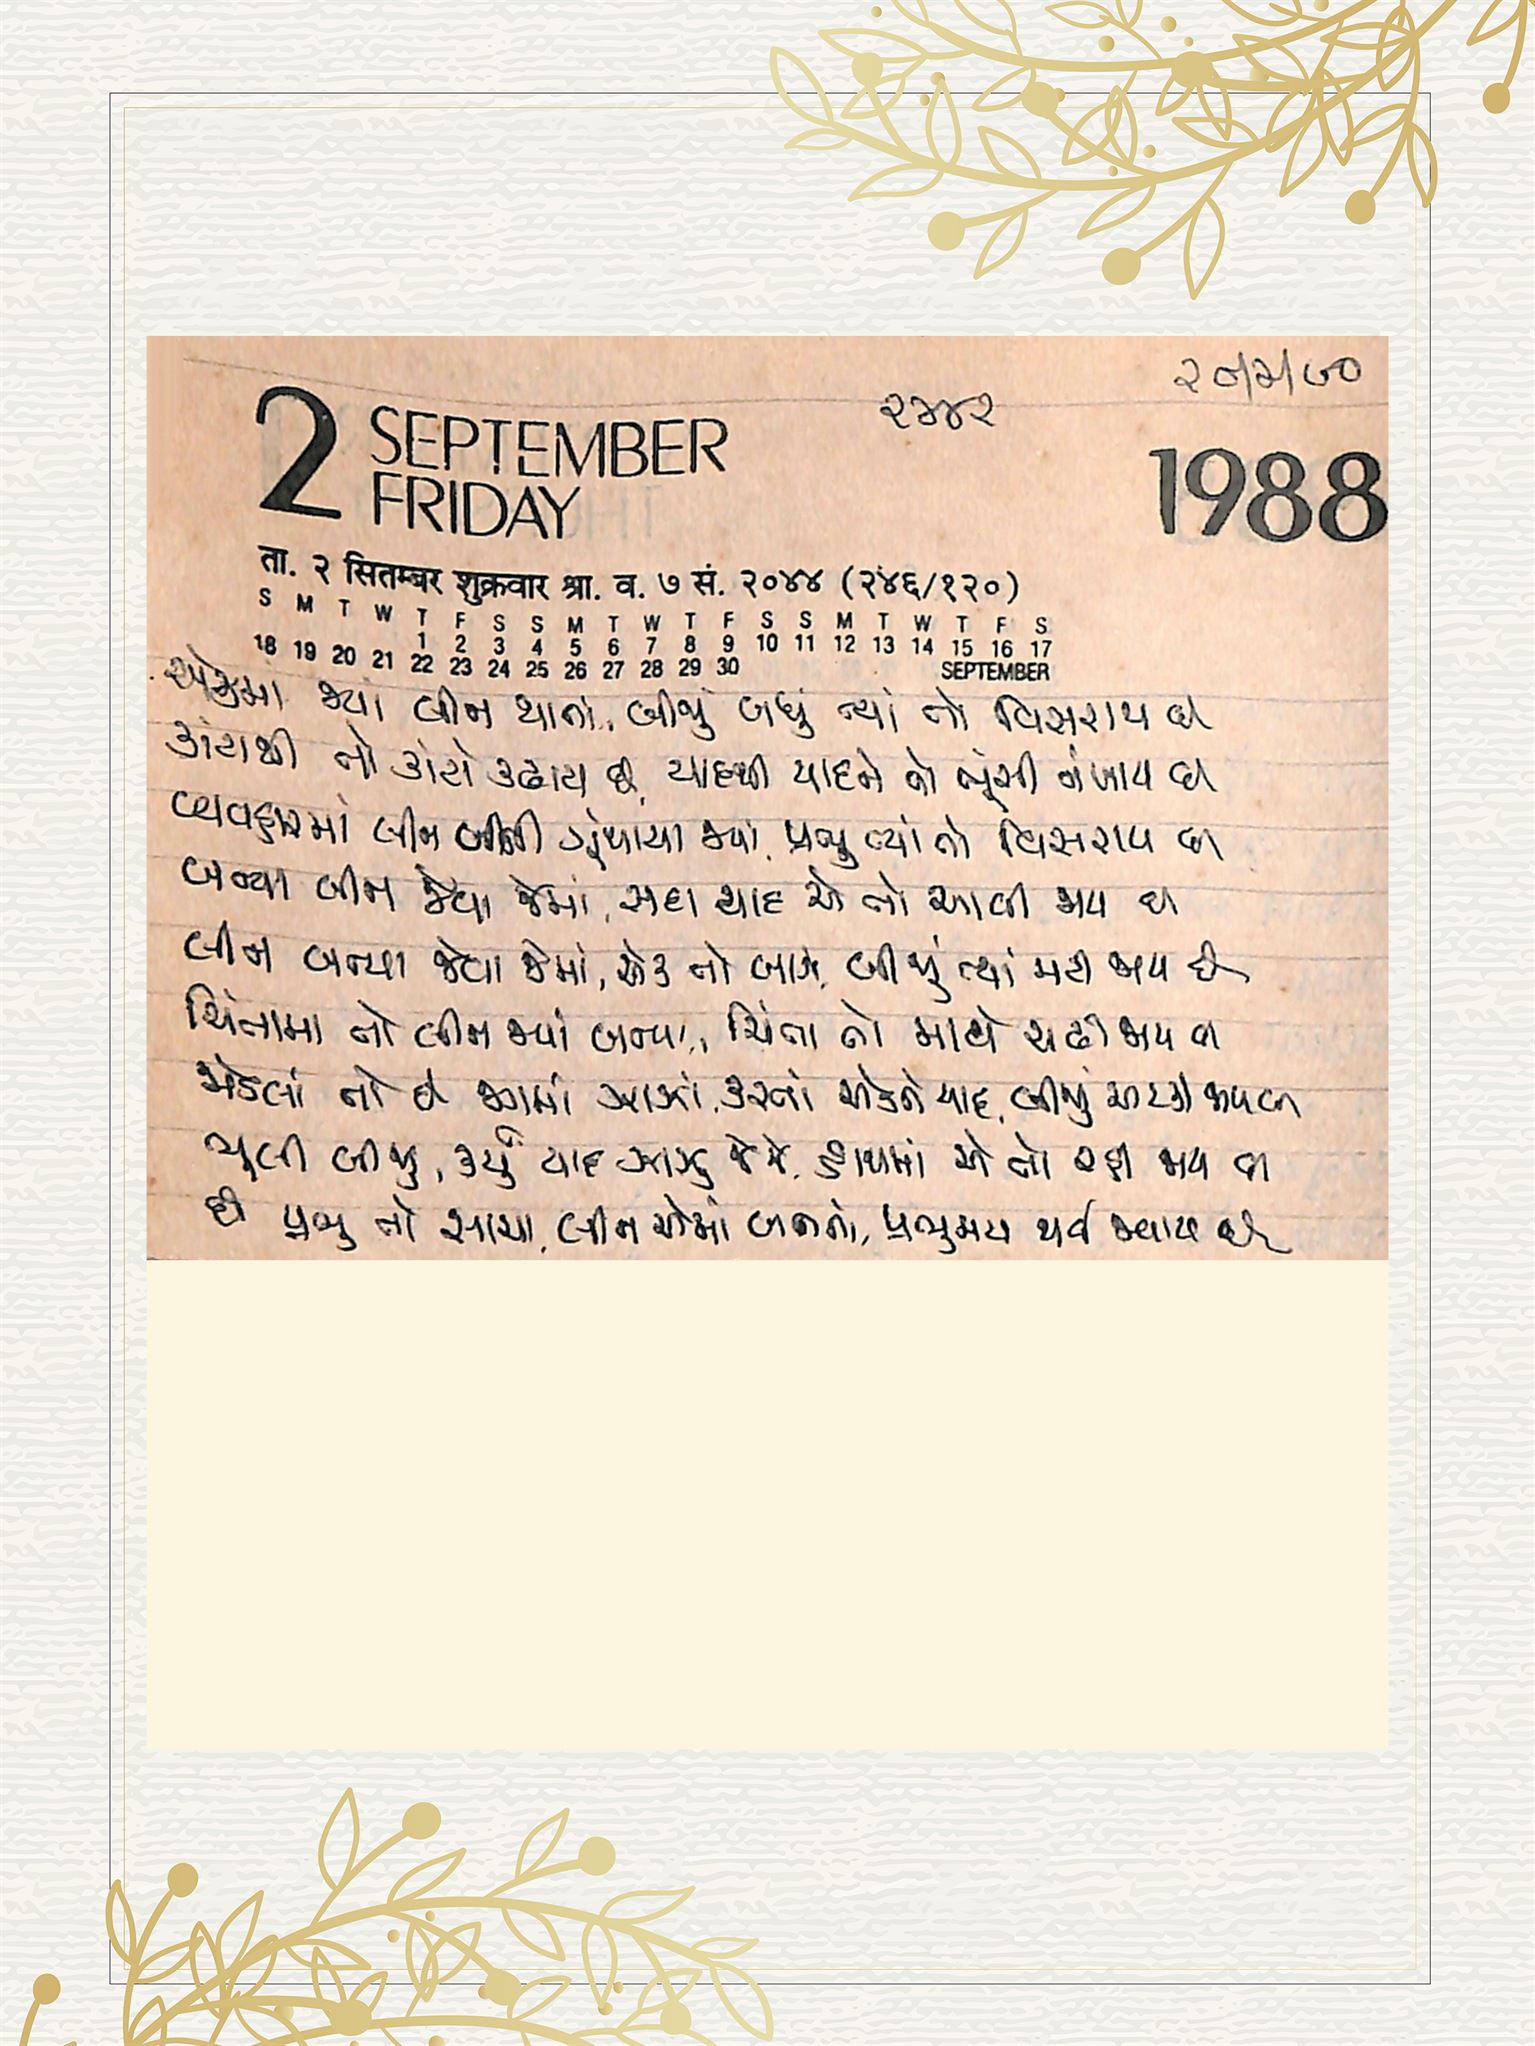 ૨૯/૫/૯૦
૨૫૪૨
2 SEPTEMBER
FRIDAY
1988
ता. २ सितम्बर शुक्रवार श्रा. व. ७ सं. २०४४ (२४६/१२०)
S M T W T F S S M T W T F S S M T W T F S
1 2 3 4 5 6 7 8 9 10 11 12 13 14 15 16 17
18 19 20 21 22 23 24 25 26 27 28 29 30 SEPTEMBER
એકમાં જ્યાં લીન થાતાં, બીજું બધું ત્યાં તો વિસરાય છે
કાંટાથી તો કાંટો કઢાય છે, યાદથી યાદને તો ભૂંસી નંખાય છે
વ્યવહારમાં લીન બની ગૂંથાયા જ્યાં, પ્રભુ ત્યાં તો વિસરાય છે
બન્યા લીન જેવા જેમાં, સદા યાદ એ તો આવી જાય છે
લીન બન્યા જેવા જેમાં, એક તો જાગે, બીજું ત્યાં મટી જાય છે
ચિંતામાં તો લીન જ્યાં બન્યા, ચિંતા તો માથે ચઢી જાય છે
તો છે કરતાં એકને યાદ, બીજું અટકી જાય છે
ભૂલી બીજું, કર્યું યાદ જે જે, હાથમાં એ તો રહી જાય છે
છે પ્રભુ તો સાચા, લીન એમાં બનતો, પ્રભુમય થઈ જવાય છે